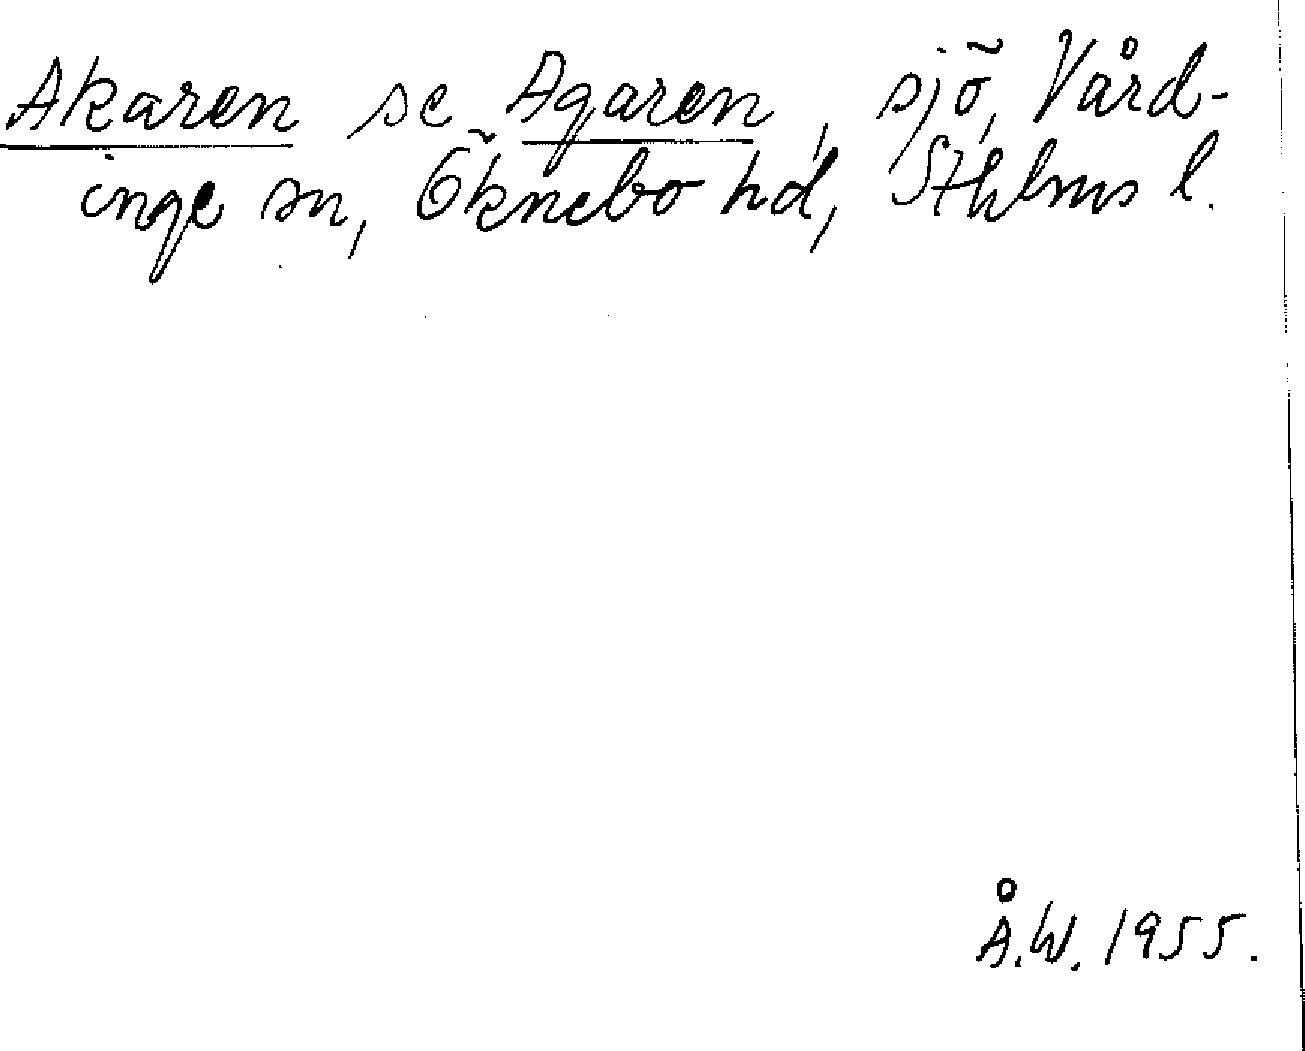 Akaren se Agaren, sjö, Vård-
inge sn, Öknebo hd, Sthlms l.
Å.W. 1955.